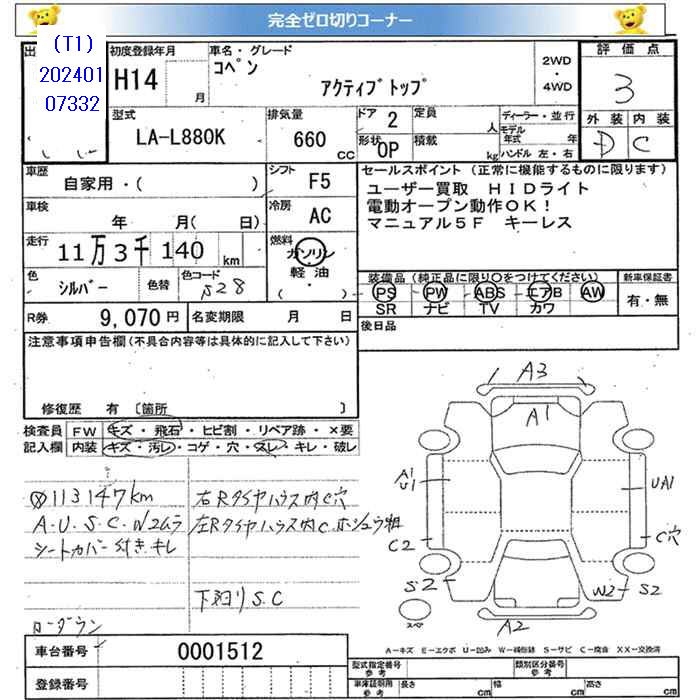 完全ゼロ切りコーナー
出
(T1)
202401
07332
初度登録年月
H14
月
車名・グレード
コペン
アクティブトップ
2WD
・
4WD
評価点
3
外装 内装
D C
型式
LA-L880K
排気量
660
CC
ドア
2
形状
OP
定員
人
積載
kg
ディーラー・並行
モデル
年式
年
ハンドル 左・右
車歴
自家用・( )
シフト
F5
車検
年 月( 日)
冷房
AC
走行
11万3千140 km
燃料
ガソリン
軽油
・
( )
色
シルバー
色替
色コード
S28
R券
9,070円
名変期限
月 日
セールスポイント(正常に機能するものに限ります)
ユーザー買取 HIDライト
電動オープン動作OK!
マニュアル5F キーレス
装備品(純正品に限り○をつけてください)
PS PW ABS エアB AW
SR ナビ TV カワ
新車保証書
有・無
後日品
注意事項申告欄(不具合内容等は具体的に記入して下さい)
修復歴 有 〔箇所 〕
検査員
記入欄
FW キズ・飛石・ヒビ割・リペア跡・×要
内装 キズ・汚レ・コゲ・穴・スレ・キレ・破レ
113147km
A・U・S・C・W2ムラ
シートカバー付きキレ
ローダウン
右Rタイヤハウス内C穴
左Rタイヤハウス内C・ホシュウ粗
下回りS.C
A3
A1
A1
U1
UA1
C2
C穴
S2
W2 S2
A2
スペア
A-キズ E-エクボ U-凹み W-補修跡 S-サビ C-腐食 XX-交換済
車台番号
0001512
登録番号
型式指定番号
参考
類別区分番号
参考
車庫証明用
参考
長さ cm
幅 cm
高さ cm